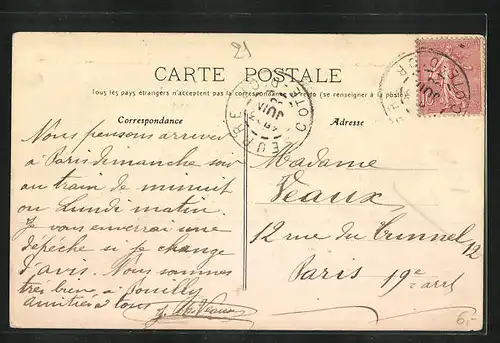 21
CARTE POSTALE
Tous les pays étrangers n'acceptent pas la correspondance au recto (se renseigner à la poste)
Correspondance
Adresse
Nous pensons arriver
à Paris dimanche soir
au train de minuit
ou Lundi matin.
Je vous enverrai une
dépêche si je change
d'avis. Nous sommes
très bien à Pouilly
amitiés à tous
Madame
Veaux
12 rue du Tunnel 12
Paris 19e arrt
6,-